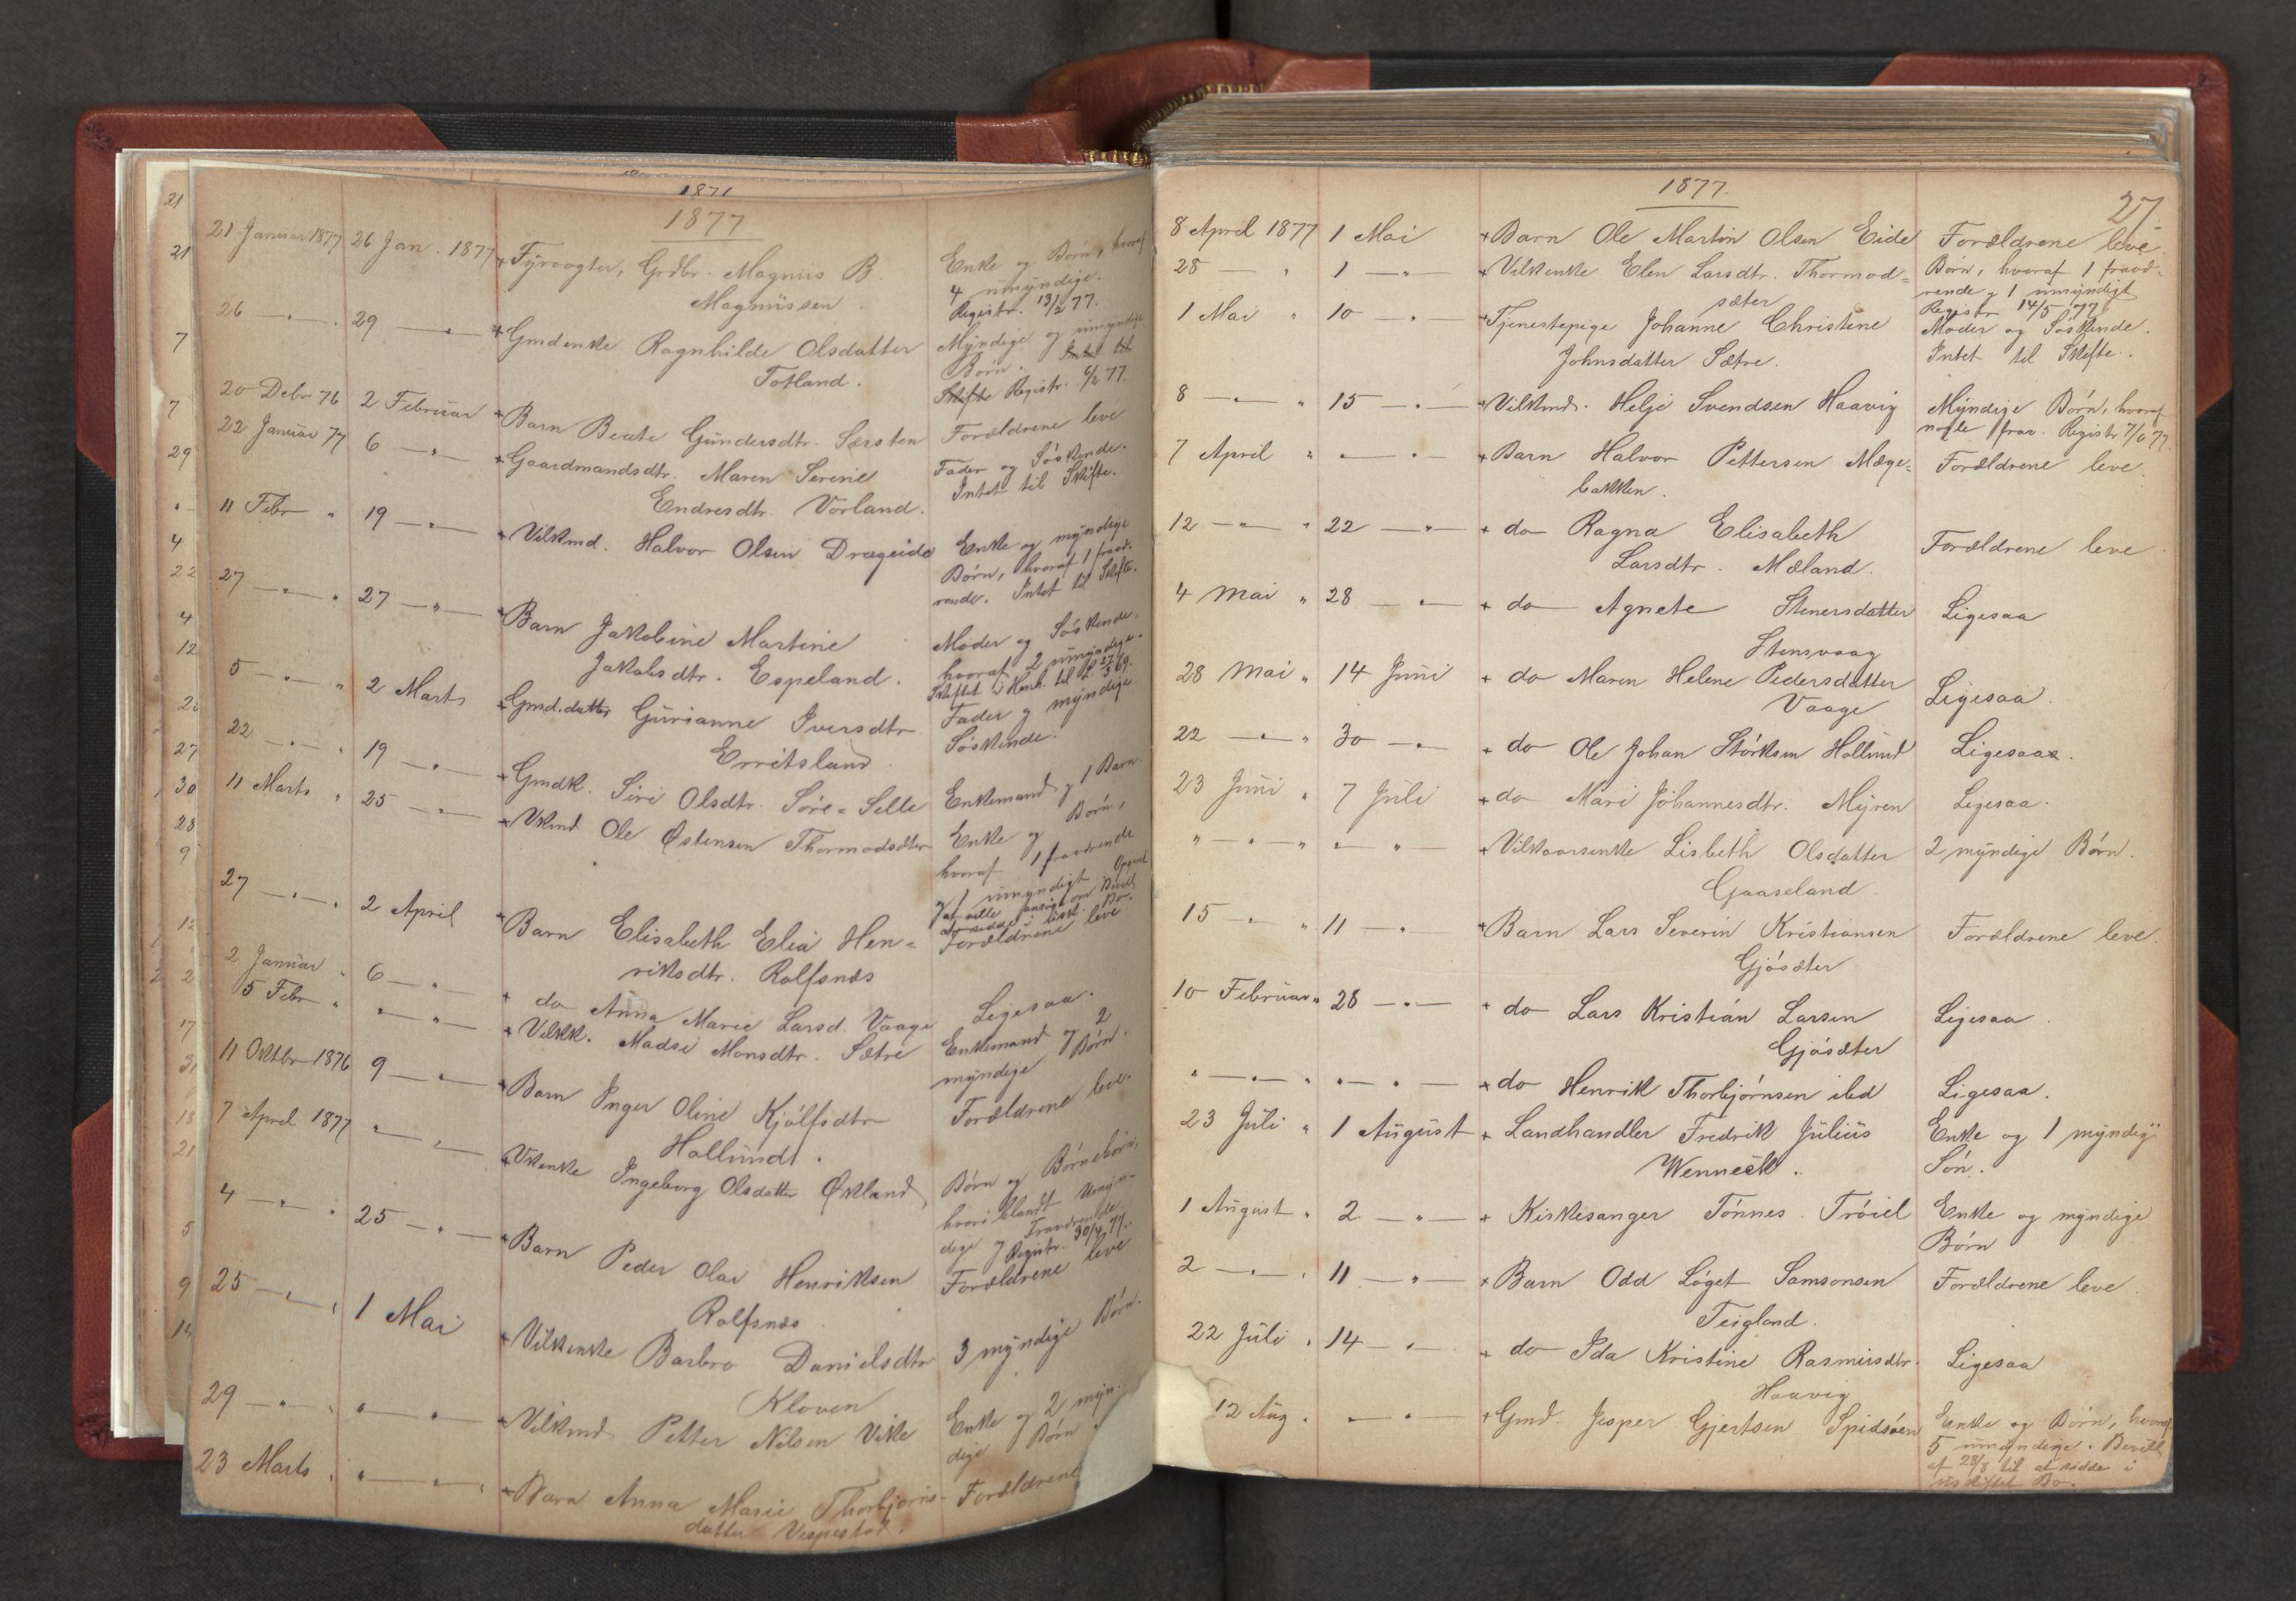 1871
1877
21 Januar 1877 26 Jan. 1877 + Fyrvogter, Grdbr. Magnus B. Enke og Børn, hvoraf
Magnussen. 4 umyndige.
Registr. 13/2 77.
26 — " . 29 — " — + Gmdenke Ragnhilde Olsdatter Myndige og umyndige
Totland. Børn. Intet til
Skifte Registr. 6/2 77.
20 Debr 76 2 Februar + Barn Beate Gundersdtr. Særsten Forældrene leve
22 Januar 77 6 — " — + Gaardmandsdtr. Maren Serine Fader og Søskende.
Endresdtr. Vorland. Intet til Skifte.
11 Febr " 19 — " — + Vilkmd. Halvor Olsen Drageide Enke og myndige
Børn, hvoraf 1 fravæ-
rende. Intet til Skifte.
27 — " — " 27 — " — + Barn Jakobine Martine Moder og Søskende,
Jakobsdtr. Espeland. hvoraf 2 umyndige.
Skiftet i Henh. til L. 27/3 69.
5 — " — " 2 Marts + Gmd.datter Gurianne Iversdtr Fader og myndige
Erritsland Søskende.
22 — " — " 19 — " — + Gmdk. Siri Olsdtr. Søre-Selle Enkemand og 1 Barn.
11 Marts " 25 — " — + Vkmd Ole Østensen Thormodsæter Enke og Børn,
hvoraf 1 fraværende
og 1 umyndigt
27 — " — " 2 April + Barn Elisabeth Elia Hen- Forældrene leve
riksdtr. Rolfsnæs
2 Januar " 6 — " — + do Anna Marie Larsd. Vaage Ligesaa.
5 Febr " " — " — + Vilkk. Madsi Monsdtr. Sætre Enkemand og 2
myndige Børn.
11 Oktbr 1876 9 — " — + Barn Inger Oline Kjølfsdtr Forældrene leve.
Hollundt.
7 April 1877 " — " — + Vkenke Ingeborg Olsdatter Økland Børn og Børnebørn,
hvoriblandt Umyn-
dige og Fraværende
Registr. 30/4 77.
4 — " — " 25 — " — + Barn Peder Olai Henriksen Forældrene leve
Rolfsnæs
25 — " — " 1 Mai + Vilkenke Barbro Danielsdtr 3 myndige Børn.
Kloven
29 — " — " " — " — + Vilkmd Petter Nilsen Vike Enke og 2 myn-
dige Børn
23 Marts " " — " — + Barn Anna Marie Thorbjørns- Forældrene
datter Vespestad.
1877.
27
8 April 1877 1 Mai + Barn Ole Martin Olsen Eide Forældrene leve.
28 — " 1 — " — + Vilkenke Elen Larsdtr. Thormod- Børn, hvoraf 1 fravæ-
sæter rende og 1 umyndigt
Registr 14/5 77
1 Mai " 10 — " — + Tjenestepige Johanne Christine Moder og Søskende.
Johnsdatter Sætre. Intet til Skifte.
8 — " — " 15 — " — + Vilkmd. Helje Svendsen Haavig Myndige Børn, hvoraf
nogle frav. Registr 7/6 77.
7 April " " — " — + Barn Halvor Pettersen Mæge- Forældrene leve.
bakken.
12 — " — " 22 — " — + do Ragna Elisabeth
Larsdtr. Mæland. Forældrene leve.
4 Mai " 28 — " — + do Agnete Stenersdatter Ligesaa
Stensvaag
28 Mai " 14 Juni + do Maren Helene Pedersdatter Ligesaa.
Vaage
22 — " — " 30 — " — + do Ole Johan Størksen Hollund Ligesaa.
23 Juni " 7 Juli + do Mari Johannesdtr. Myren Ligesaa.
" — " — " " — " — + Vilkaarsenke Lisbeth Olsdatter 2 myndige Børn.
Gaaseland.
15 — " — " 11 — " — + Barn Lars Severin Kristiansen Forældrene leve.
Gjøsæter
10 Februar " 28 — " — + do Lars Kristian Larsen Ligesaa.
Gjøsæter
" — " — " " — " — + do Henrik Thorbjørnsen ibd Ligesaa.
23 Juli " 1 August + Landhandler Fredrik Julius Enke og 1 myndig
Wenneck. Søn.
1 August " 2 — " — + Kirkesanger Tønnes Trøiel Enke og myndige
Børn
2 — " — " 11 — " — + Barn Odd Løget Samsonsen Forældrene leve.
Teigland.
22 Juli " 14 — " — + do Ida Kristine Rasmusdtr. Ligesaa
Haavig
12 Aug. " — " — + Gmd. Jesper Gjertsen Spidsøen Enke og Børn, hvoraf
5 umyndige. Bevill.
af 28/8 til at sidde i
uskiftet Bo.